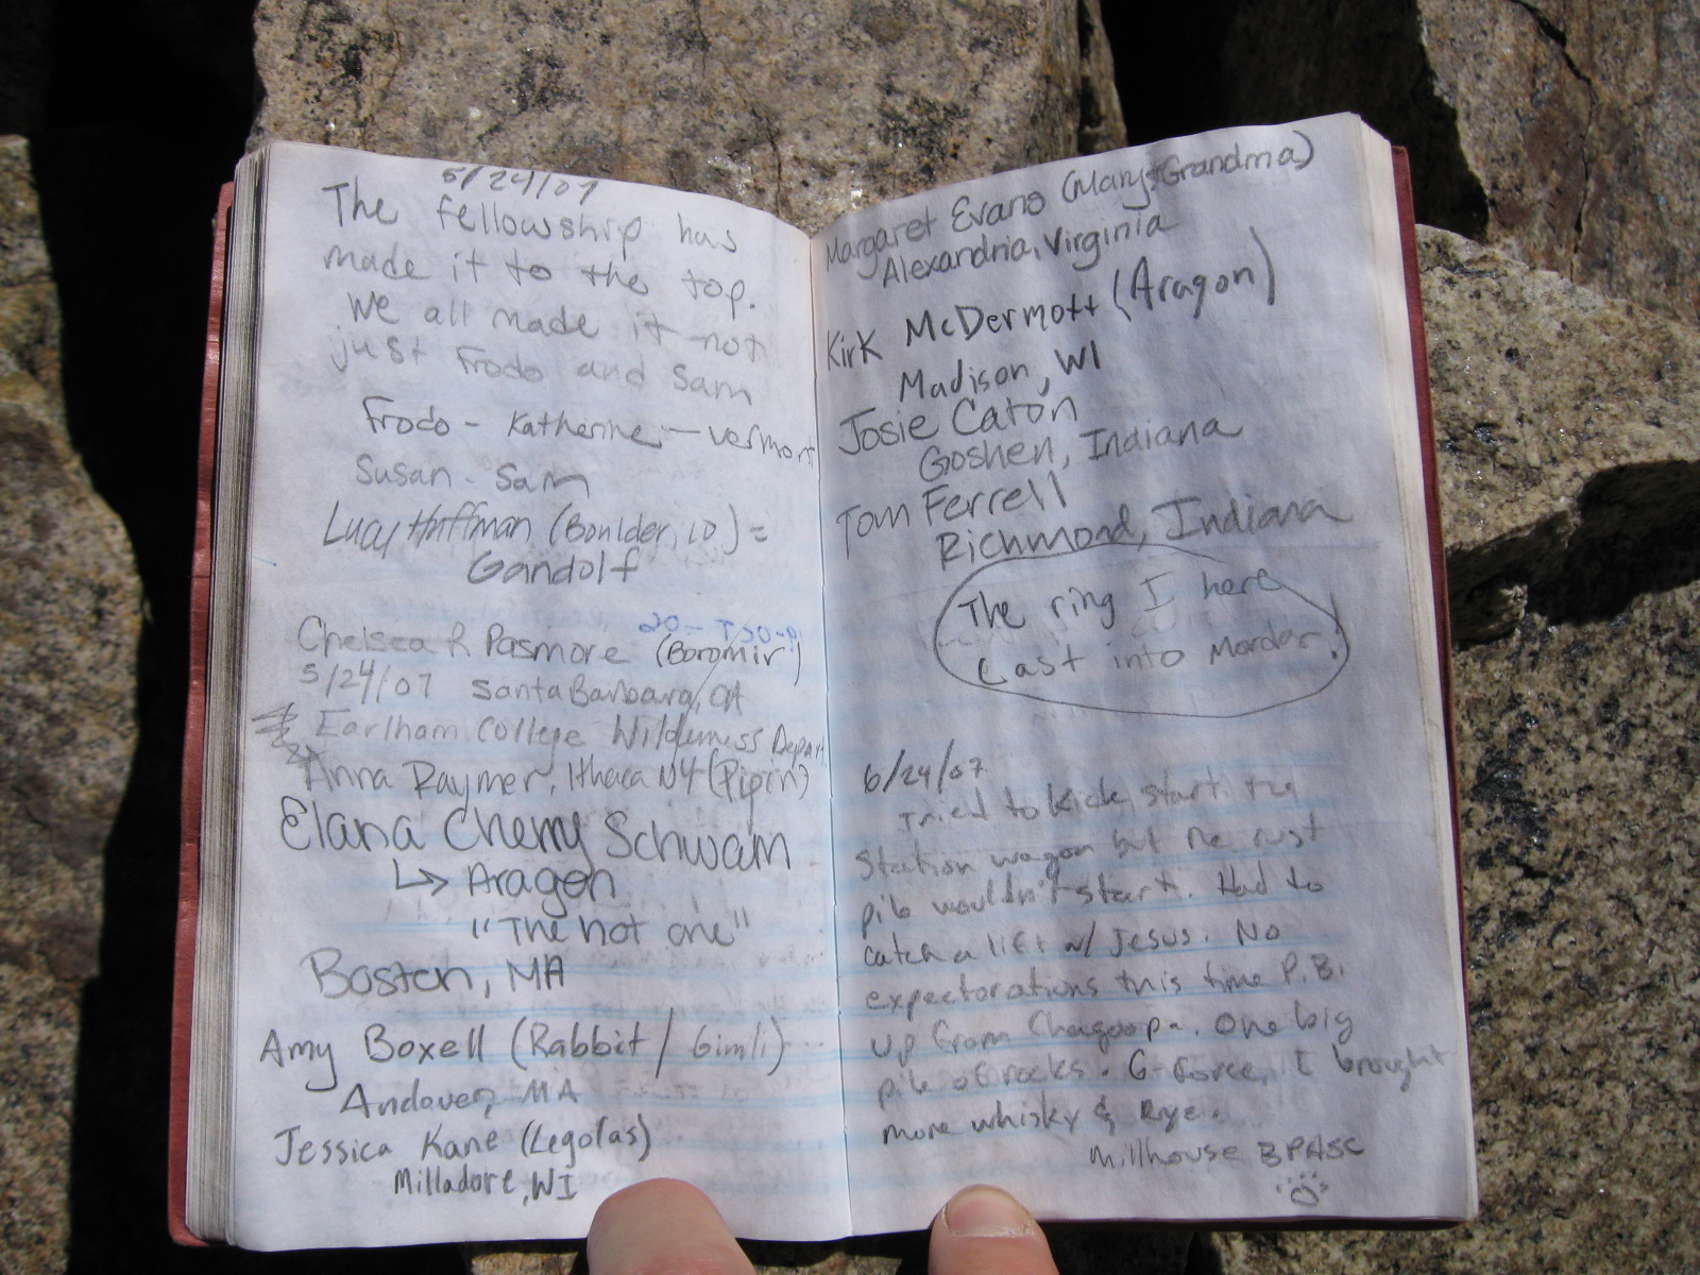 5/24/07
The fellowship has
made it to the top.
We all made it not
just Frodo and Sam
Frodo - Katherine - Vermont
Susan - Sam
Lucy Huffman (Boulder, CO) =
Gandolf
Chelsea R Pasmore (Boromir)
5/24/07 Santa Barbara, CA
Earlham College Wilderness Depart.
Anna Raymer, Ithaca NY (Pipin)
Elana Cherry Schwam
↳ Aragon
"The hot one"
Boston, MA
Amy Boxell (Rabbit / Gimli)
Andover, MA
Jessica Kane (Legolas)
Milladore, WI
Margaret Evans (Mary + Grandma)
Alexandria, Virginia
Kirk McDermott (Aragon)
Madison, WI
Josie Caton
Goshen, Indiana
Tom Ferrell
Richmond, Indiana
The ring I here
cast into Mordor!
6/24/07
Tried to kick start the
station wagon but the rust
pile wouldn't start. Had to
catch a lift w/ Jesus. No
expectorations this time P.B.
up from Chagoopa. One big
pile of rocks. G-Force, I brought
more whisky & Rye.
Millhouse BPASC